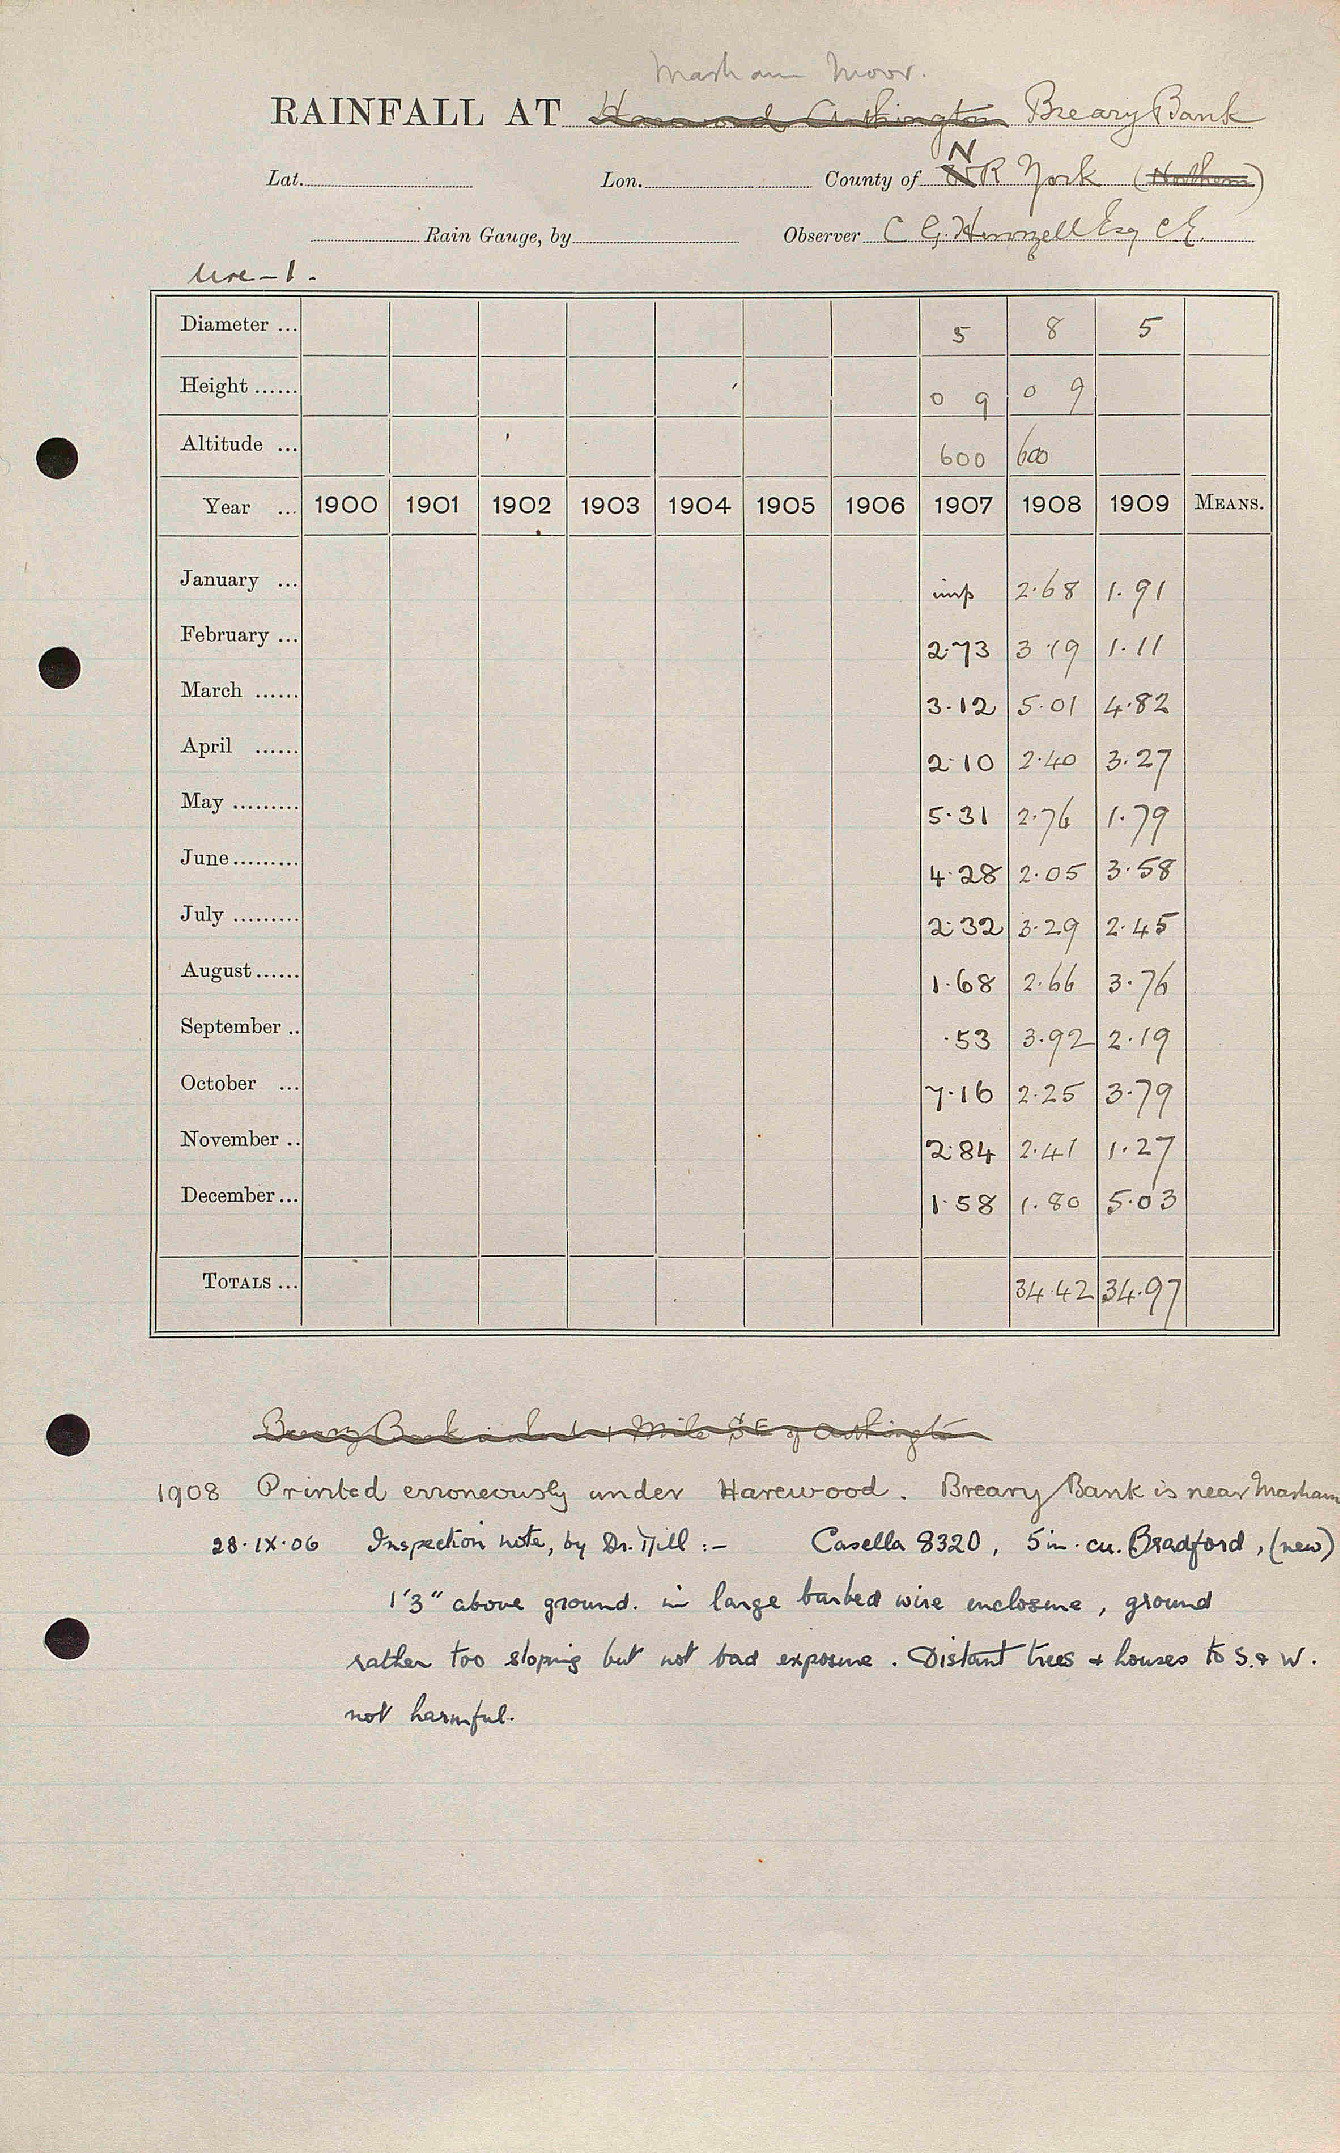 Masham Moor.
RAINFALL AT Harewood Arthington Breary Bank
N
Lat. Lon. County of WR York (Northern)
Rain Gauge, by Observer C G. Esq C.E.
Ure - 1.
Diameter ... 5 8 5
Height ...... 0 9 0 9
Altitude ... 600 600
Year ... 1900 1901 1902 1903 1904 1905 1906 1907 1908 1909 MEANS.
January ... imp 2.68 1.91
February ... 2.73 3.19 1.11
March ...... 3.12 5.01 4.82
April ...... 2.10 2.40 3.27
May ......... 5.31 2.76 1.79
June ......... 4.28 2.05 3.58
July ......... 2.32 3.29 2.45
August ...... 1.68 2.66 3.76
September .. .53 3.92 2.19
October ... 7.16 2.25 3.79
November .. 2.84 2.41 1.27
December ... 1.58 1.80 5.03
TOTALS ... 34.42 34.97
Breary Bank is about 1 Mile SE of Arthington
1908 Printed erroneously under Harewood. Breary Bank is near Masham
28.IX.06 Inspection note, by Dr. Mill :- Casella 8320, 5 in. cu. Bradford, (new)
1'3" above ground. in large barbed wire enclosure, ground
rather too sloping but not bad exposure. Distant trees + houses to S. & W.
not harmful.